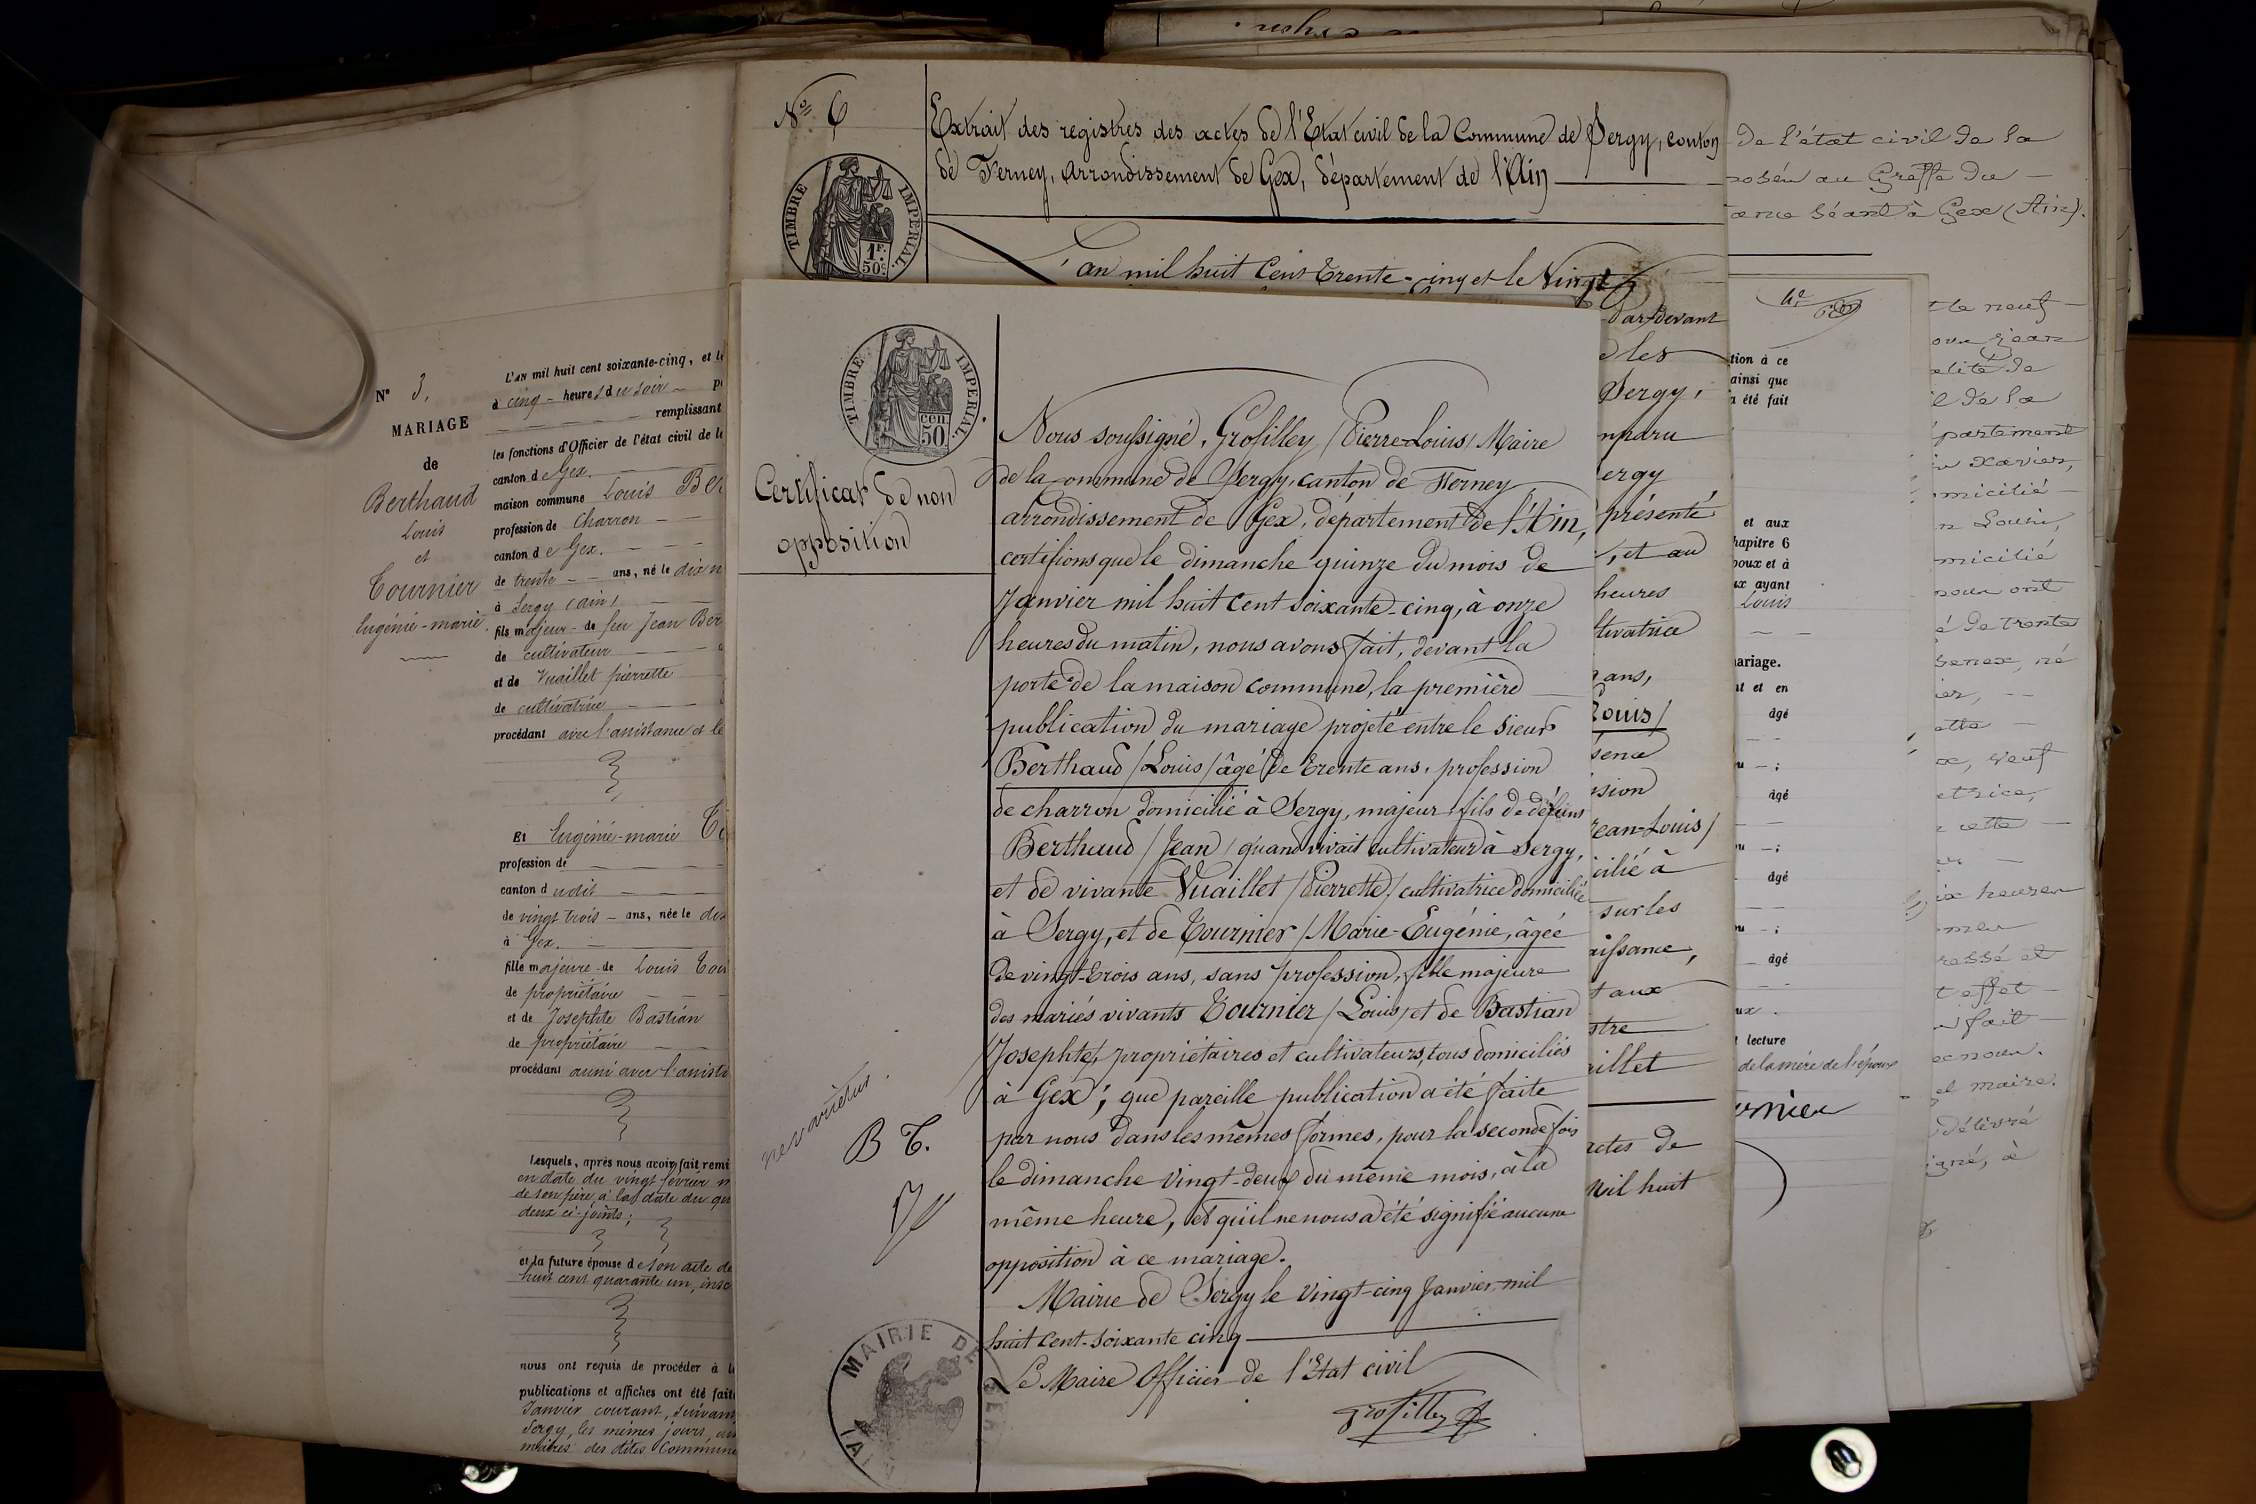 N° 3.
MARIAGE
de
Berthaud
Louis
et
Tournier
Eugénie-marie.
L'AN mil huit cent soixante-cinq, et le
à cinq heures du soir
remplissant
les fonctions d'Officier de l'état civil de la
canton de Gex.
maison commune Louis Ber
profession de Charron
canton de Gex.
de trente ans, né le dix n
à Sergy (ain)
fils majeur de feu Jean Ber
de cultivateur
et de Vuaillet pierrette
de cultivatrice
procédant avec l'assistance et le
Et Eugénie-marie To
profession de
canton dudit
de vingt trois ans, née le dix
à Gex.
fille majeure de Louis Tou
de propriétaire
et de Josephte Bastian
de propriétaire
procédant aussi avec l'assista
Lesquels, après nous avoir fait remi
en date du vingt février m
de son père, à la date du qu
deux ci-joints;
et la future épouse de son acte de
huit cent quarante un, insc
nous ont requis de procéder à la
publications et affiches ont été faite
Janvier courant, suivant
Sergy, les mêmes jours, au
maires des dites Commune
N° 6
Extrait des registres des actes de l'Etat civil de la Commune de Sergy, canton
de Ferney, arrondissement de Gex, département de l'Ain
TIMBRE IMPERIAL.
1F.
50c.
L'an mil huit Cent Trente-cinq et le Vingt
TIMBRE IMPERIAL.
CEN.
50
Certificat de non
opposition
Nous soussigné, Grosilley (Pierre-Louis) Maire
de la commune de Sergy, canton de Ferney
arrondissement de Gex, département de l'Ain,
certifions que le dimanche quinze du mois de
Janvier mil huit cent soixante-cinq, à onze
heures du matin, nous avons fait, devant la
porte de la maison commune, la première
publication du mariage projeté entre le sieur
Berthaud (Louis) âgé de trente ans, profession
de charron domicilié à Sergy, majeur, fils de défunt
Berthaud (Jean) quand vivait cultivateur à Sergy,
et de vivante Vuaillet (Pierrette) cultivatrice domiciliée
à Sergy, et de Tournier (Marie-Eugénie, âgée
de vingt-trois ans, sans profession, fille majeure
des mariés vivants Tournier (Louis) et de Bastian
Josephte, propriétaires et cultivateurs, tous domiciliés
à Gex; que pareille publication a été faite
par nous dans les mêmes formes, pour la seconde fois
le dimanche vingt-deux du même mois, à la
même heure, et qu'il ne nous a été signifié aucune
opposition à ce mariage.
Mairie de Sergy le vingt-cinq Janvier mil
huit cent soixante cinq
Le Maire Officier de l'Etat civil
Grosilley
ne varietur.
B T.
MAIRIE DE SER
(AIN)
Par devant
les
Sergy,
mparu
ergy
présenté
, et au
heures
ltivatrice
ans,
Louis)
sence
ssion
Jean-Louis)
cilié à
sur les
aissance,
t aux
stre
aillet
actes de
Mil huit
tion à ce
ainsi que
a été fait
et aux
hapitre 6
poux et à
ux ayant
Louis
ariage.
nt et en
âgé
âgé
âgé
âgé
lecture
de la mère de l'époux
urnier
de l'état civil de la
posés au Greffe du
ance séant à Gex (Ain).
t le neuf
partement
xavier,
micilié
micilié
é de trente
veuf
cette
ix heures
ressé et
t effet
fait
nous.
maire.
délivré
igné, à